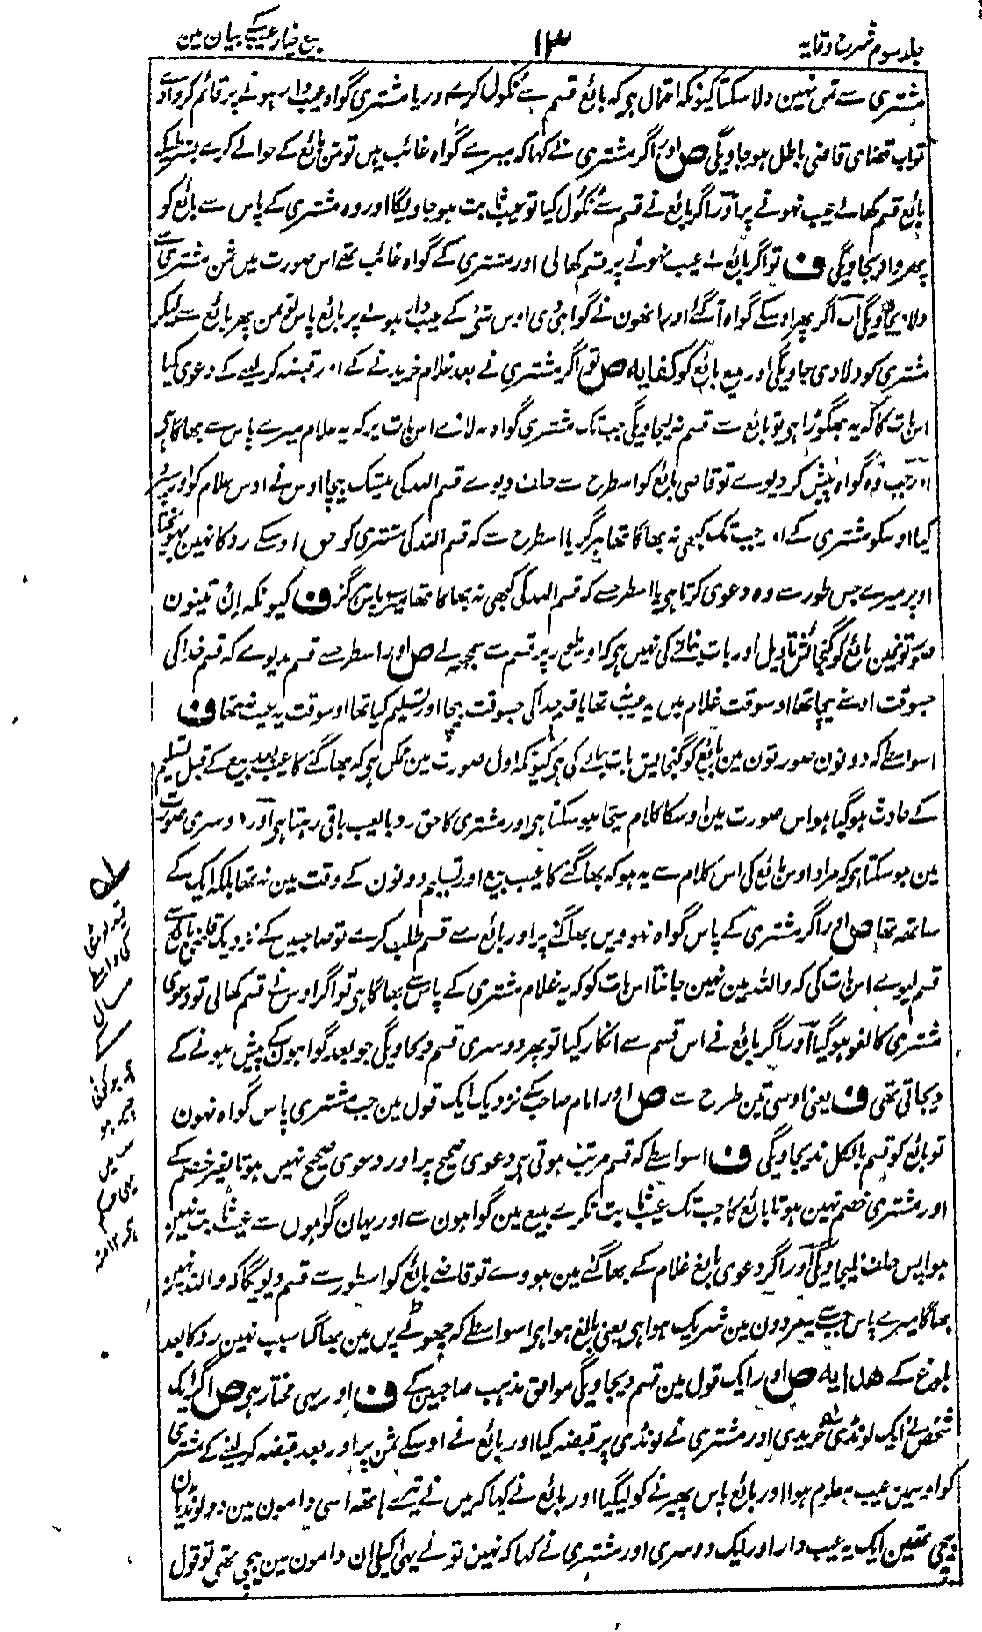 جلد سوم شرح وقایہ
۱۳
بیع خیار عیب کے بیان مین
مشتری سے ثمن نہین دلا سکتا کیونکہ احتمال ہی کہ بائع قسم سے نکول کرے اور یا مشتری گواہ عیب دار ہونے پر قائم کر دے
تو اب قضای قاضی باطل ہو جاویگی ص اور اگر مشتری نے کہا کہ میرے گواہ غائب ہین تو ثمن بائع کے حوالے کرے بشرطیکہ
بائع قسم کھالے عیب نہونے پر اور اگر بائع نے قسم سے نکول کیا تو عیب ثابت ہو جاویگا اور وہ مشتری کے پاس سے بائع کو
پھروا دیجاویگی ف تو اگر بائع نے عیب نہونے پر قسم کھالی اور مشتری کے گواہ غائب تھے اس صورت مین ثمن مشتری سے
دلا دیجاویگی اب اگر پھر اوسکے گواہ آگئے اور انھون نے گواہی دی اوس شئی کے عیب دار ہونے پر بائع پاس تو ثمن پھر بائع سے لیکر
مشتری کو دلا دی جاویگی اور مبیع بائع کو کفایہ ص تو اگر مشتری نے بعد غلام خریدنے کے اور قبضہ کر لینے کے دعوی کیا
اس بات کا کہ یہ بھگوڑا ہی تو بائع سے قسم نہ لیجاویگی جب تک مشتری گواہ نہ لائے اس بات پر کہ یہ غلام میرے پاس سے بھاگا ہی
اور جب وہ گواہ پیش کر دیوے تو قاضی بائع کو اسطرح سے حلف دیوے قسم اللہ کی بیشک بیچا اوس نے اوس غلام کو اور سپرد
کیا اوسکو مشتری کے اور جب تک کبھی نہ بھاگا تھا ہرگز یا اسطرح سے کہ قسم اللہ کی مشتری کو حق اوسکے رد کا نہین پہونچتا
اوپر میرے جس طور سے وہ دعوی کرتا ہی یا اسطرح سے کہ قسم اللہ کی کبھی نہ بھاگا تھا میرے پاس ہرگز ف کیونکہ ان تینون
صورتونمین بائع کو گنجائش تاویل اور بات بنانے کی نہین ہی کہ اور طور پر قسم سے سمجھ لے ص اور اسطرح سے قسم ندیوے کہ قسم خدا کی
جسوقت اوسنے بیچا تھا اوسوقت غلام مین یہ عیب نتھا یا قسم خدا کی جسوقت بیچا اور تسلیم کیا تھا اوسوقت یہ عیب نہ تھا ف
اسواسطے کہ دونون صورتون مین بائع کو گنجایش بات بنانے کی ہی کیونکہ اول صورت مین ممکن ہی کہ بھاگنے کا عیب بعد بیع کے قبل تسلیم
کے حادث ہو گیا ہو اس صورت مین اوسکا کلام سچا ہو سکتا ہی اور مشتری کا حق رد بالعیب باقی رہتا ہی اور دوسری صورت
مین ہو سکتا ہی کہ مراد اوس بائع کی اس کلام سے یہ ہو کہ بھاگنے کا عیب بیع اور تسلیم دونون کے وقت مین نہ تھا بلکہ ایک کے
ساتھ تھا ص اور اگر مشتری کے پاس گواہ نہوویں بھاگنے پر اور بائع سے قسم طلب کرے تو صاحبین کے نزدیک قاضی بائع سے
قسم لیوے اس بات کی کہ واللہ مین نہین جانتا اس بات کو کہ یہ غلام مشتری کے پاس سے بھاگا ہی تو اگر اوس نے قسم کھالی تو دعوی
مشتری کا لغو ہو گیا اور اگر بائع نے اس قسم سے انکار کیا تو پھر دوسری قسم دیجاویگی جو بعد گواہون کے پیش ہونے کے
دیجاتی تھی ف یعنی اوسی تین طرح سے ص اور امام صاحب کے نزدیک ایک قول مین جب مشتری پاس گواہ نہون
تو بائع کو قسم بالکل ندیجاویگی ف اسواسطے کہ قسم مرتب ہوتی ہی دعوی صحیح پر اور دعوی صحیح نہین ہوتا بغیر خصم کے
اور مشتری خصم نہین ہوتا بائع کا جب تک عیب ثابت نکرے مبیع مین گواہون سے اور یہان گواہوں سے عیب ثابت نہین
ہوا پس حلف نہ لیجاویگی اور اگر دعوی بالغ غلام کے بھاگنے مین ہووے تو قاضی بائع کو اسطور سے قسم دیویگا کہ واللہ نہین
بھاگا میرے پاس جب سے مردون مین شریک ہوا ہی یعنی بالغ ہوا ہی اسواسطے کہ چھوٹے پن مین بھاگنا سبب نہین رد کا بعد
بلوغ کے ھدایہ ص اور ایک قول مین قسم دیجاویگی موافق مذہب صاحبین کے ف اور یہی مختار ہی ص اگر ایک
شخص نے ایک لونڈی خریدی اور مشتری نے لونڈی پر قبضہ کیا اور بائع نے اوسکے ثمن پر اور بعد قبضہ کر لینے کے مشتری
کو اوسمین عیب معلوم ہوا اور بائع پاس پھیرنے کو لیگیا اور بائع نے کہا کہ میں نے تیرے ہاتھ اسی دامون مین دو لونڈیان
بیچی تھین ایک یہ عیب دار اور ایک دوسری اور مشتری نے کہا کہ نہین تو نے یہی اکیلی ان دامون مین بیچی تھی تو قول